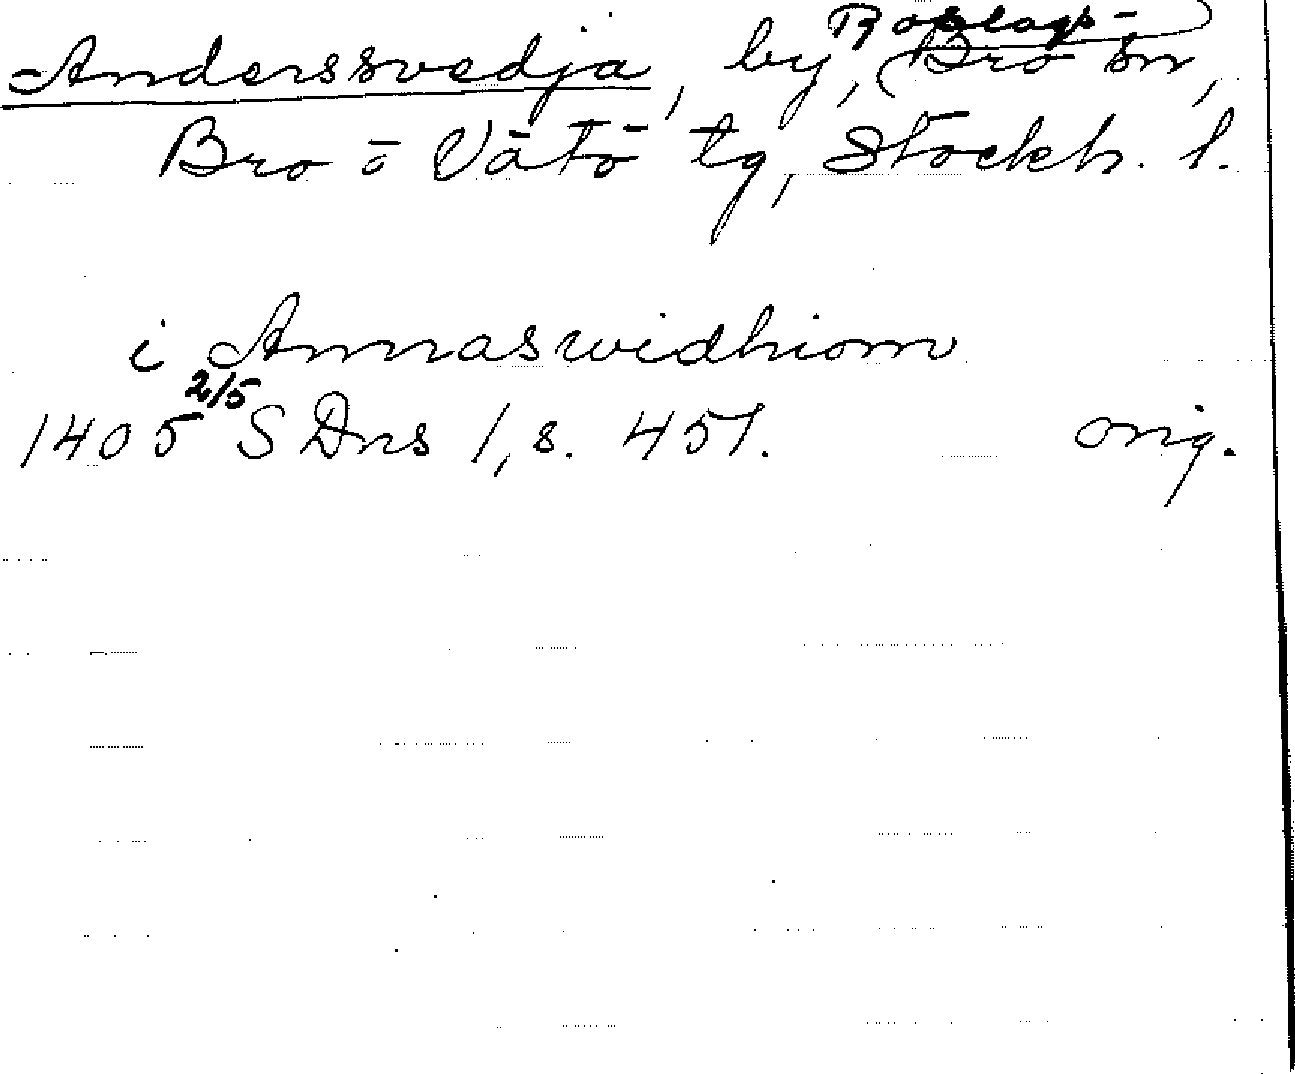 Anderssvedja, by, Roslags-Bro sn,
Bro o Vätö tg, Stockh. l.
i Annaswidhiom
1405 2/5 SDns 1, s. 451. orig.